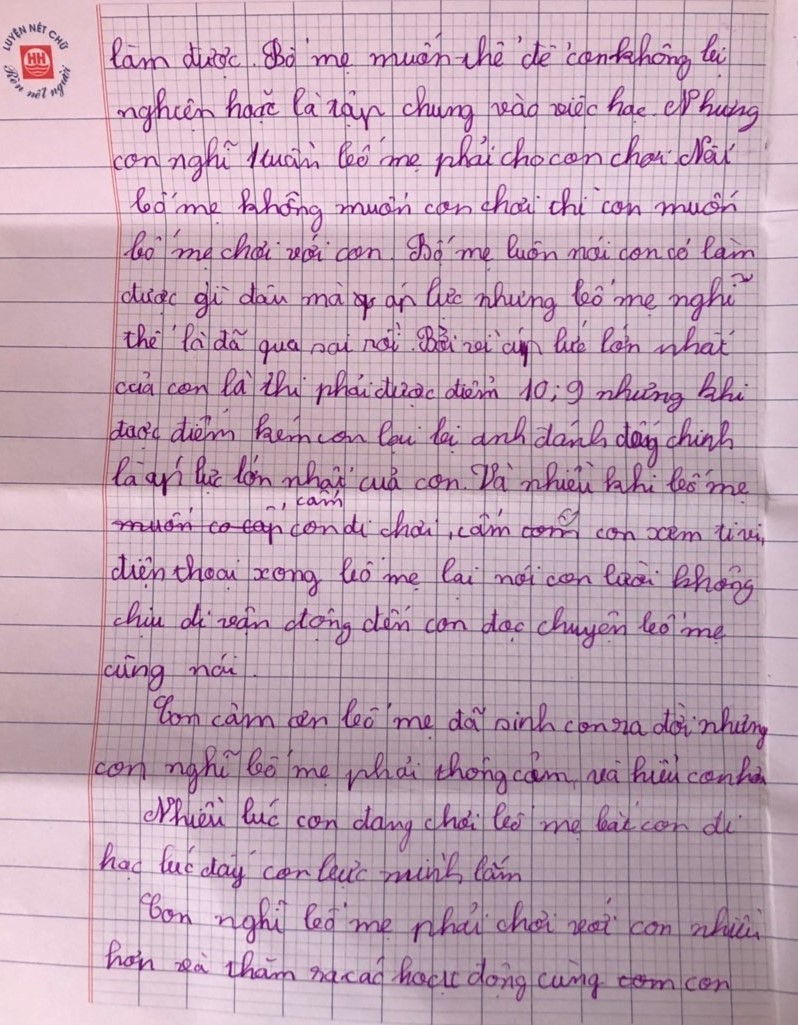 LUYỆN NÉT CHỮ
HH
Rèn nết người
làm được. Bố mẹ muốn thế để con không bị
nghiện hoặc là tập chung vào việc học. Nhưng
con nghĩ 1 tuần bố mẹ phải cho con chơi. Nếu
bố mẹ không muốn con chơi thì con muốn
bố mẹ chơi với con. Bố mẹ luôn nói con có làm
được gì đâu mà áp lực nhưng bố mẹ nghĩ
thế là đã quá sai rồi. Bởi vì áp lực lớn nhất
của con là thi phải được điểm 10; 9 nhưng khi
được điểm kém con lại bị anh đánh đấy chính
là áp lực lớn nhất của con. Và nhiều khi bố mẹ
muốn co cấp, cấm con đi chơi, cấm com con xem tivi,
điện thoại xong bố mẹ lại nói con lười không
chịu đi vận động đến con đọc chuyện bố mẹ
cũng nói.
Con cảm ơn bố mẹ đã sinh con ra đời nhưng
con nghĩ bố mẹ phải thông cảm, và hiểu con hơn
Nhiều lúc con đang chơi bố mẹ bắt con đi
học lúc đấy con bực mình lắm
Con nghĩ bố mẹ phải chơi với con nhiều
hơn và tham ra các hoạt động cùng com con